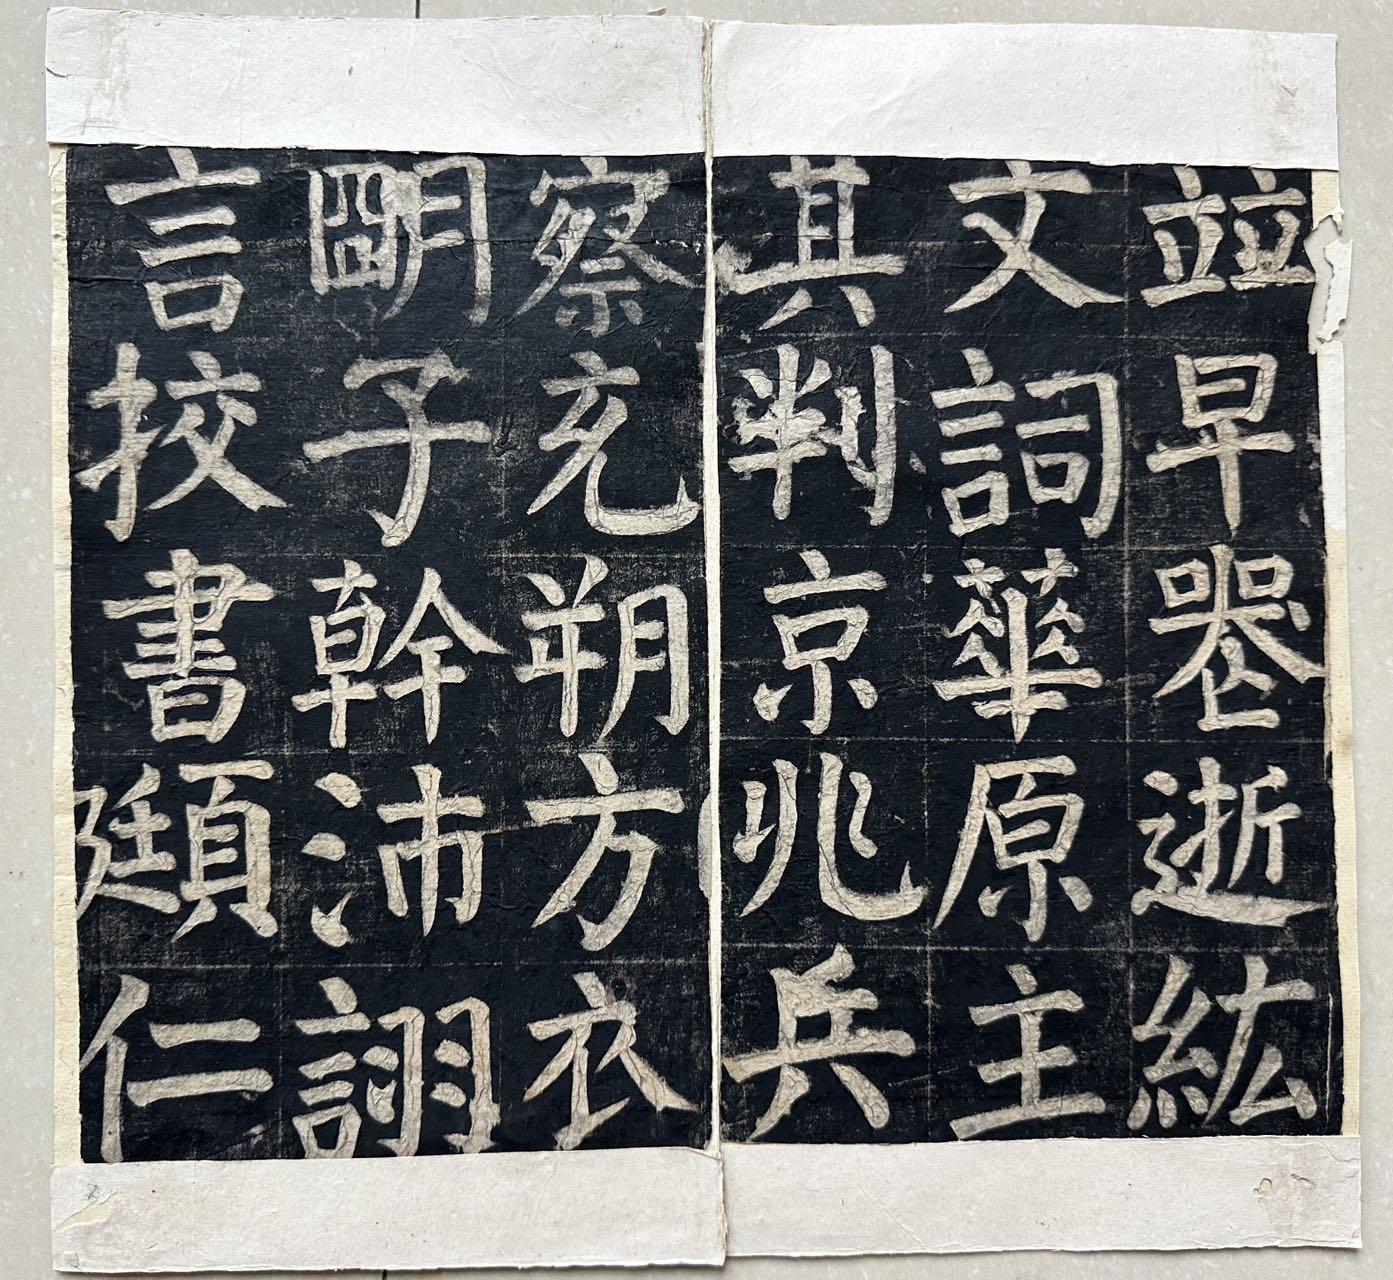 並早丗逝紘
文詞華原主
其判京兆兵
察充朔方衣
朙子幹沛詡
言挍書頲仁